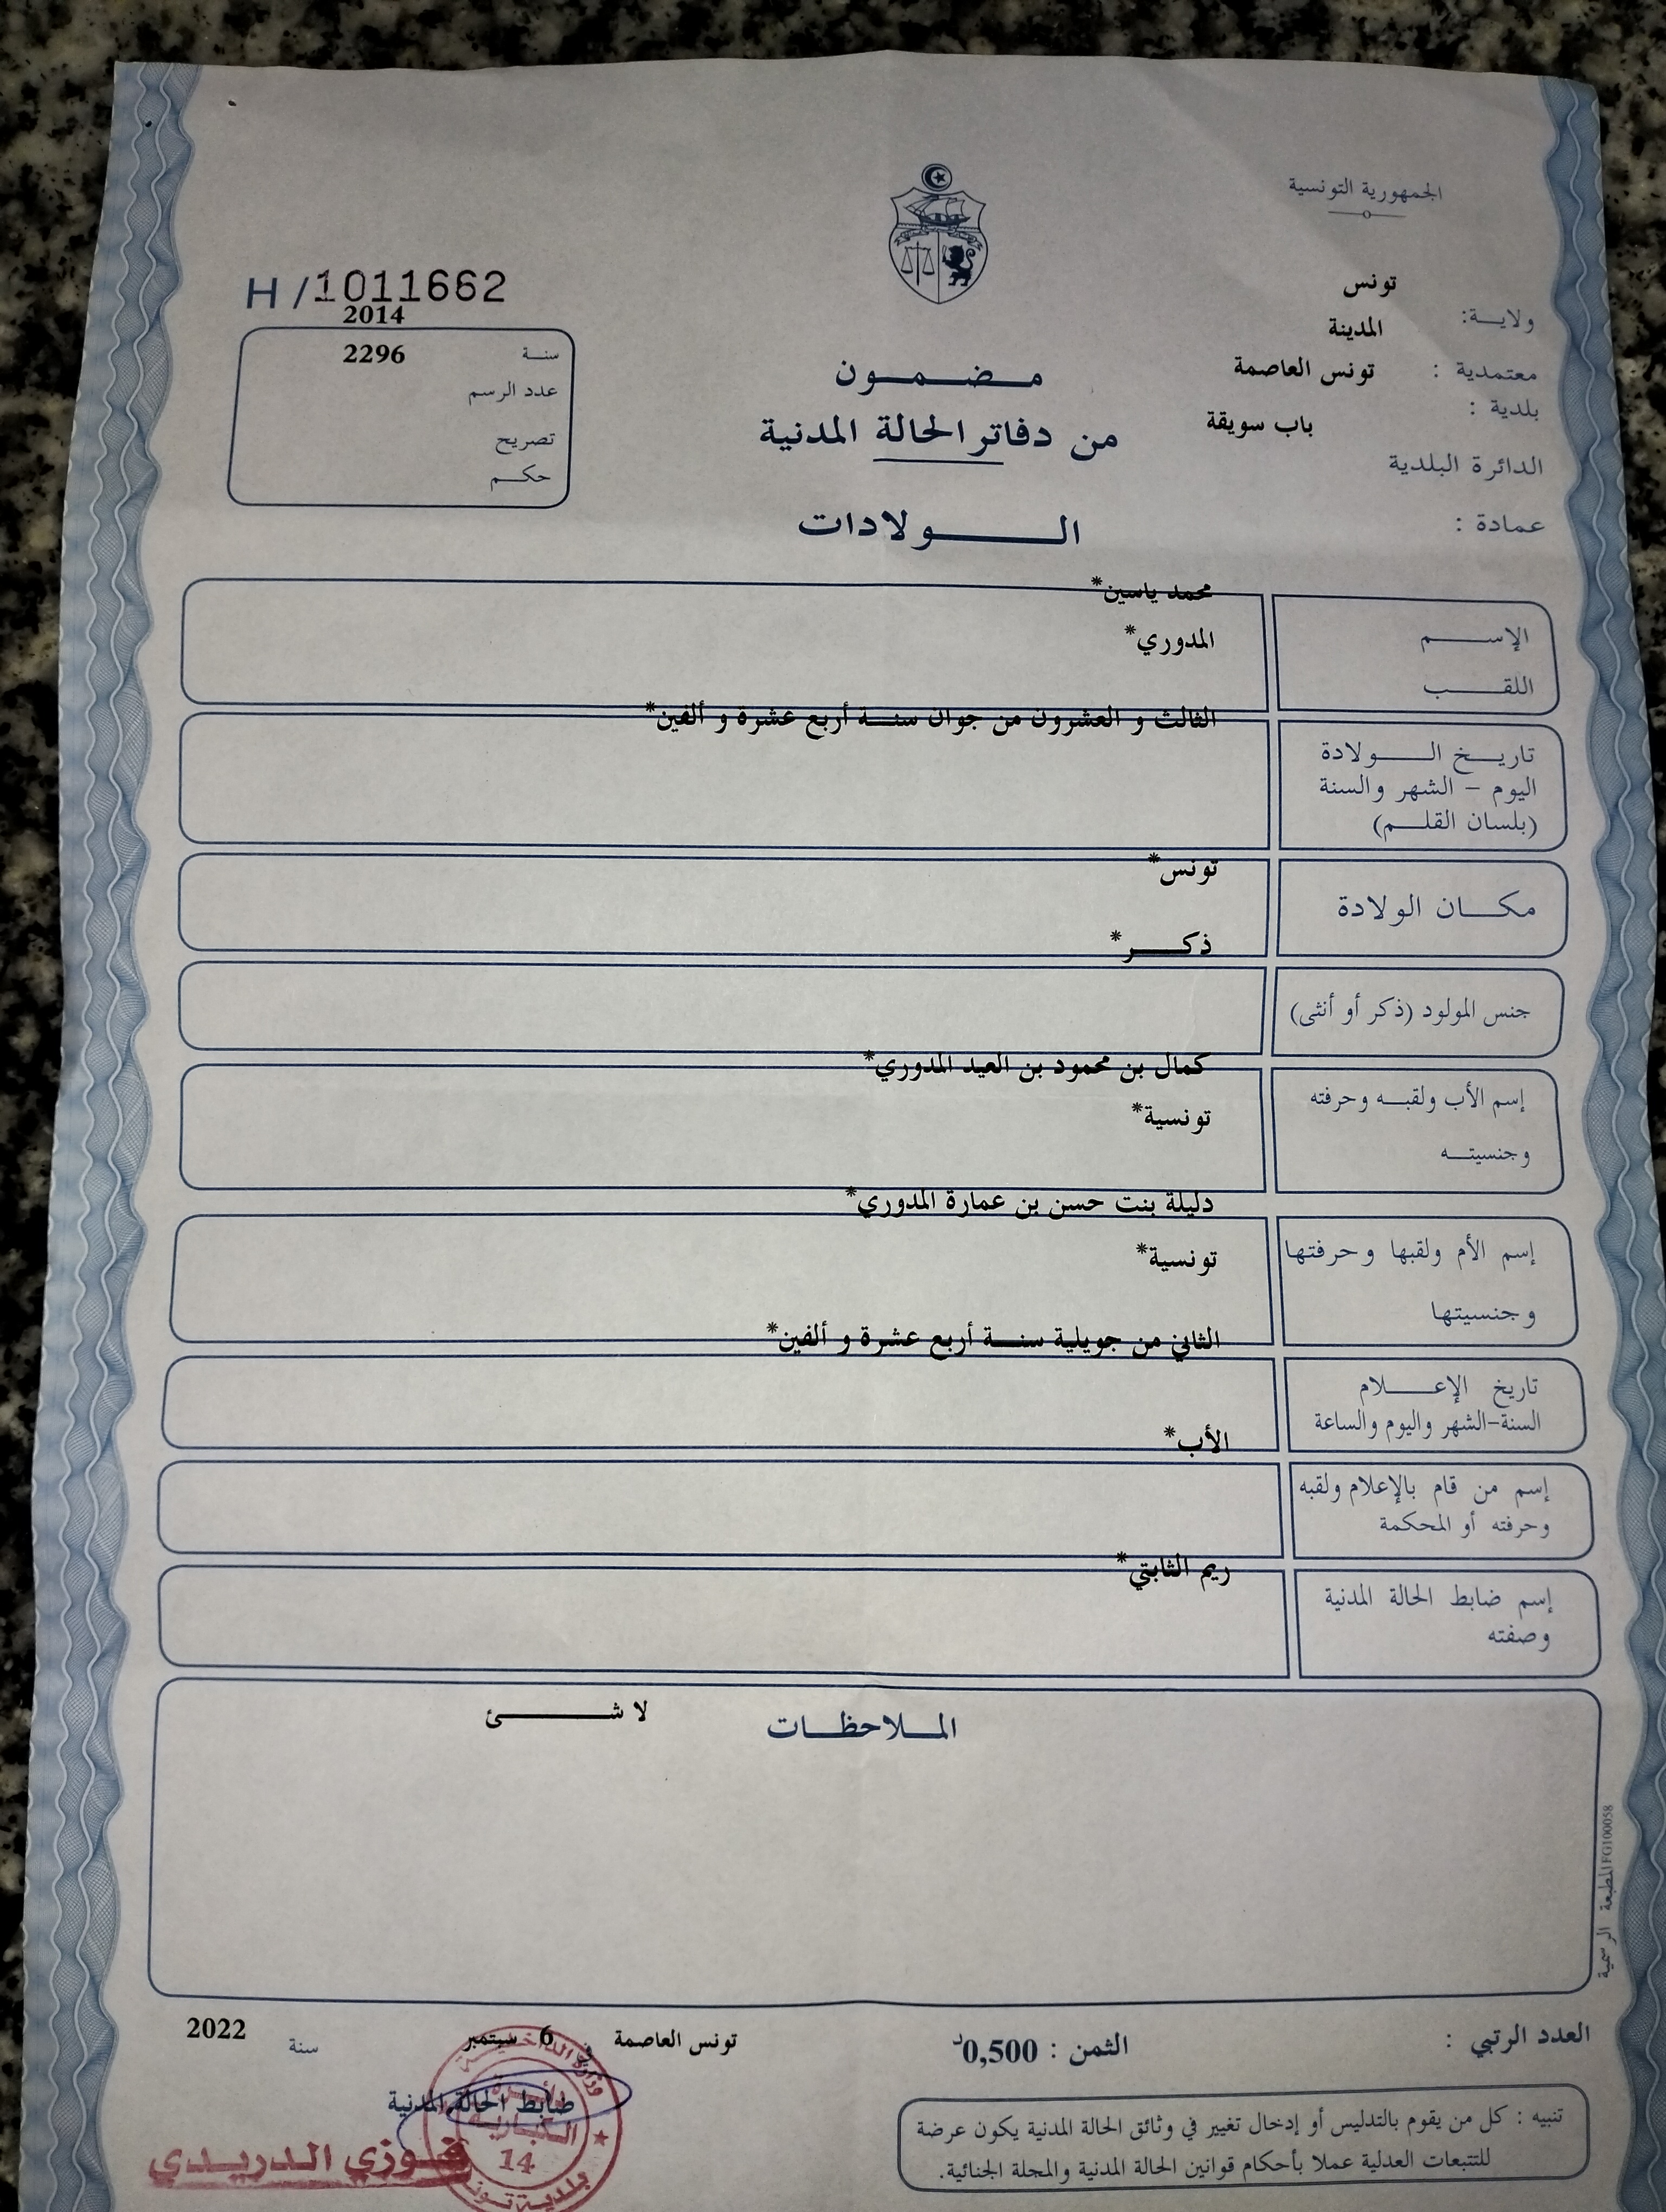 الجمهورية التونسية
ولايــة: تونس
معتمدية : المدينة
بلدية : تونس العاصمة
الدائرة البلدية باب سويقة
عمادة :
H/1011662
سنة 2014
عدد الرسم 2296
تصريح
حكم
مضمون
من دفاتر الحالة المدنية
الولادات
الإسم محمد ياسين*
اللقب المدوري*
تاريخ الولادة الثالث و العشرون من جوان سنة أربع عشرة و ألفين*
اليوم - الشهر والسنة
(بلسان القلم)
مكان الولادة تونس*
جنس المولود (ذكر أو أنثى) ذكر*
إسم الأب ولقبه وحرفته كمال بن محمود بن العيد المدوري*
وجنسيته تونسية*
إسم الأم ولقبها وحرفتها دليلة بنت حسن بن عمارة المدوري*
وجنسيتها تونسية*
تاريخ الإعلام الثاني من جويلية سنة أربع عشرة و ألفين*
السنة-الشهر واليوم والساعة
إسم من قام بالإعلام ولقبه الأب*
وحرفته أو المحكمة
إسم ضابط الحالة المدنية ريم الثابتي*
وصفته
الملاحظات لا شئ
المطبعة الرسمية FG100058
العدد الرتبي :
الثمن : 0,500د
تونس العاصمة في 6 سبتمبر سنة 2022
ضابط الحالة المدنية
فوزي الدريدي
وزارة الداخلية
دائرة
الكبارية
14
بلدية تونس
تنبيه : كل من يقوم بالتدليس أو إدخال تغيير في وثائق الحالة المدنية يكون عرضة
للتتبعات العدلية عملا بأحكام قوانين الحالة المدنية والمجلة الجنائية.